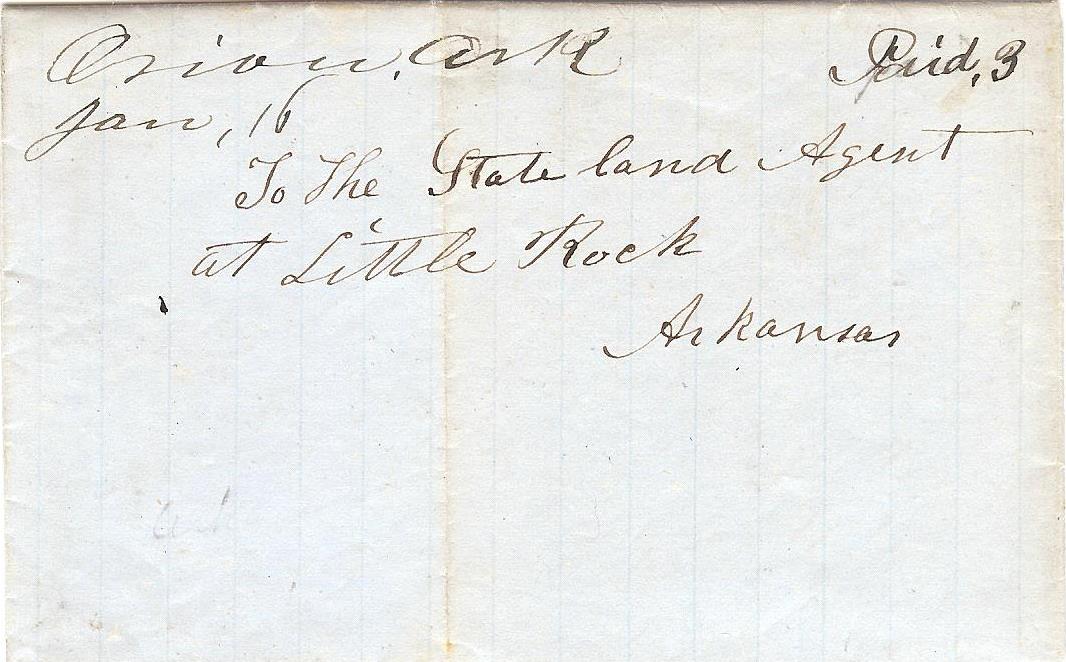 Orion, Ark Paid, 3
Jan, 16
To The State land Agent
at Little Rock
Arkansas